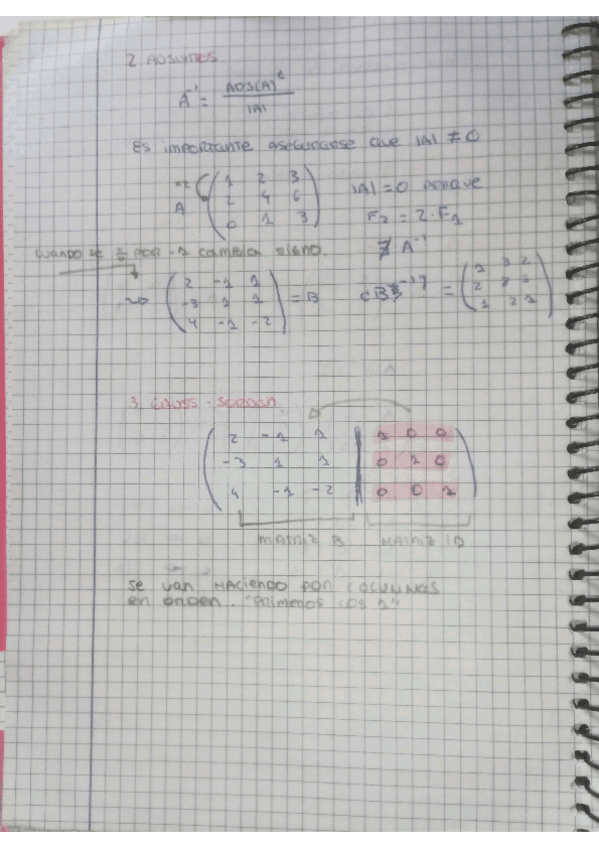 2. ADJUNTOS.
A⁻¹ = ADJ(A)ᵗ / |A|
Es importante asegurarse que |A| ≠ 0
A ( 1 2 3 |A| = 0 porque
2 4 6 F₂ = 2·F₁
0 1 3 ) ∄ A⁻¹
por -1 cambia signo.
( 2 -1 1
-3 1 1
4 -1 -2 ) = B
3. Gauss - Jordan.
( 2 -1 1 | 1 0 0
-3 1 1 | 0 1 0
4 -1 -2 | 0 0 1 )
MATRIZ B MATRIZ ID
se van HACIENDO POR COLUMNAS
en orden. "Primeros los 1"